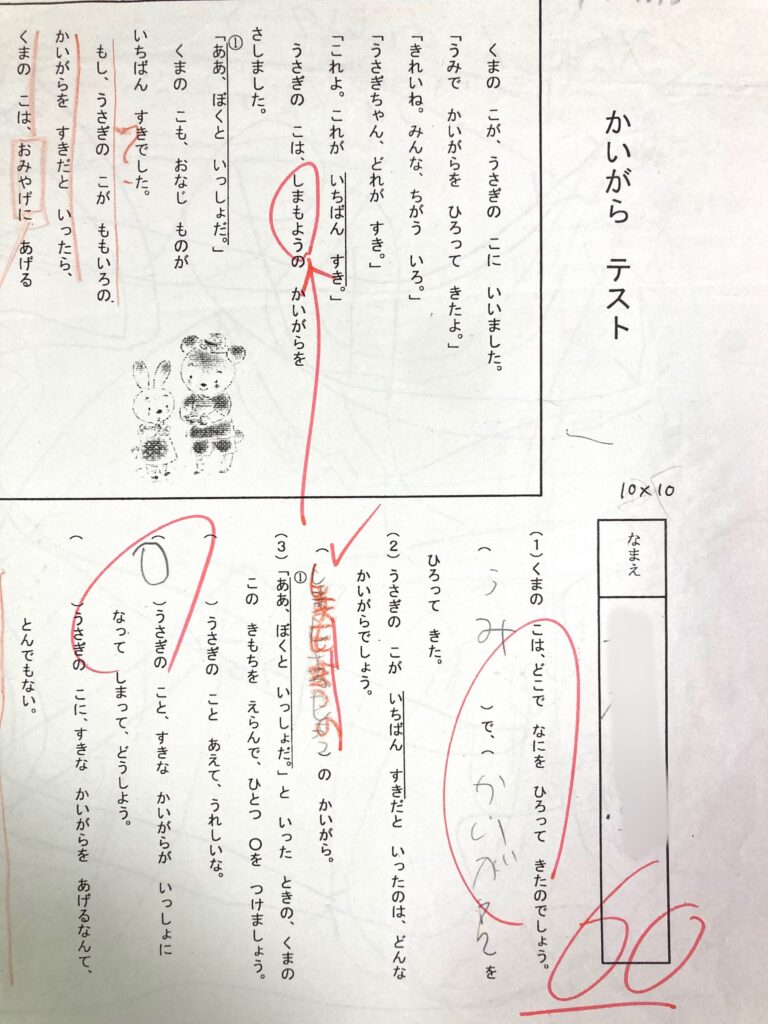 かいがら テスト
くまの こが、うさぎの こに いいました。
「うみで かいがらを ひろって きたよ。」
「きれいね。みんな、ちがう いろ。」
「うさぎちゃん、どれが すき。」
「これよ。これが いちばん すき。」
うさぎの こは、しまもようの かいがらを
さしました。
①
「ああ、ぼくと いっしょだ。」
くまの こも、おなじ ものが
いちばん すきでした。
もし、うさぎの こが ももいろの
かいがらを すきだと いったら、
くまの こは、おみやげに あげる
10×10
なまえ
60
(1)くまの こは、どこで なにを ひろって きたのでしょう。
( うみ )で、( かいがら を
ひろって きた。
(2)うさぎの こが いちばん すきだと いったのは、どんな
かいがらでしょう。
の かいがら。
①
(3)「ああ、ぼくと いっしょだ。」と いった ときの、くまの
この きもちを えらんで、ひとつ ○を つけましょう。
( )うさぎの こと あえて、うれしいな。
( ○ )うさぎの こと、すきな かいがらが いっしょに
なって しまって、どうしよう。
( )うさぎの こに、すきな かいがらを あげるなんて、
とんでもない。